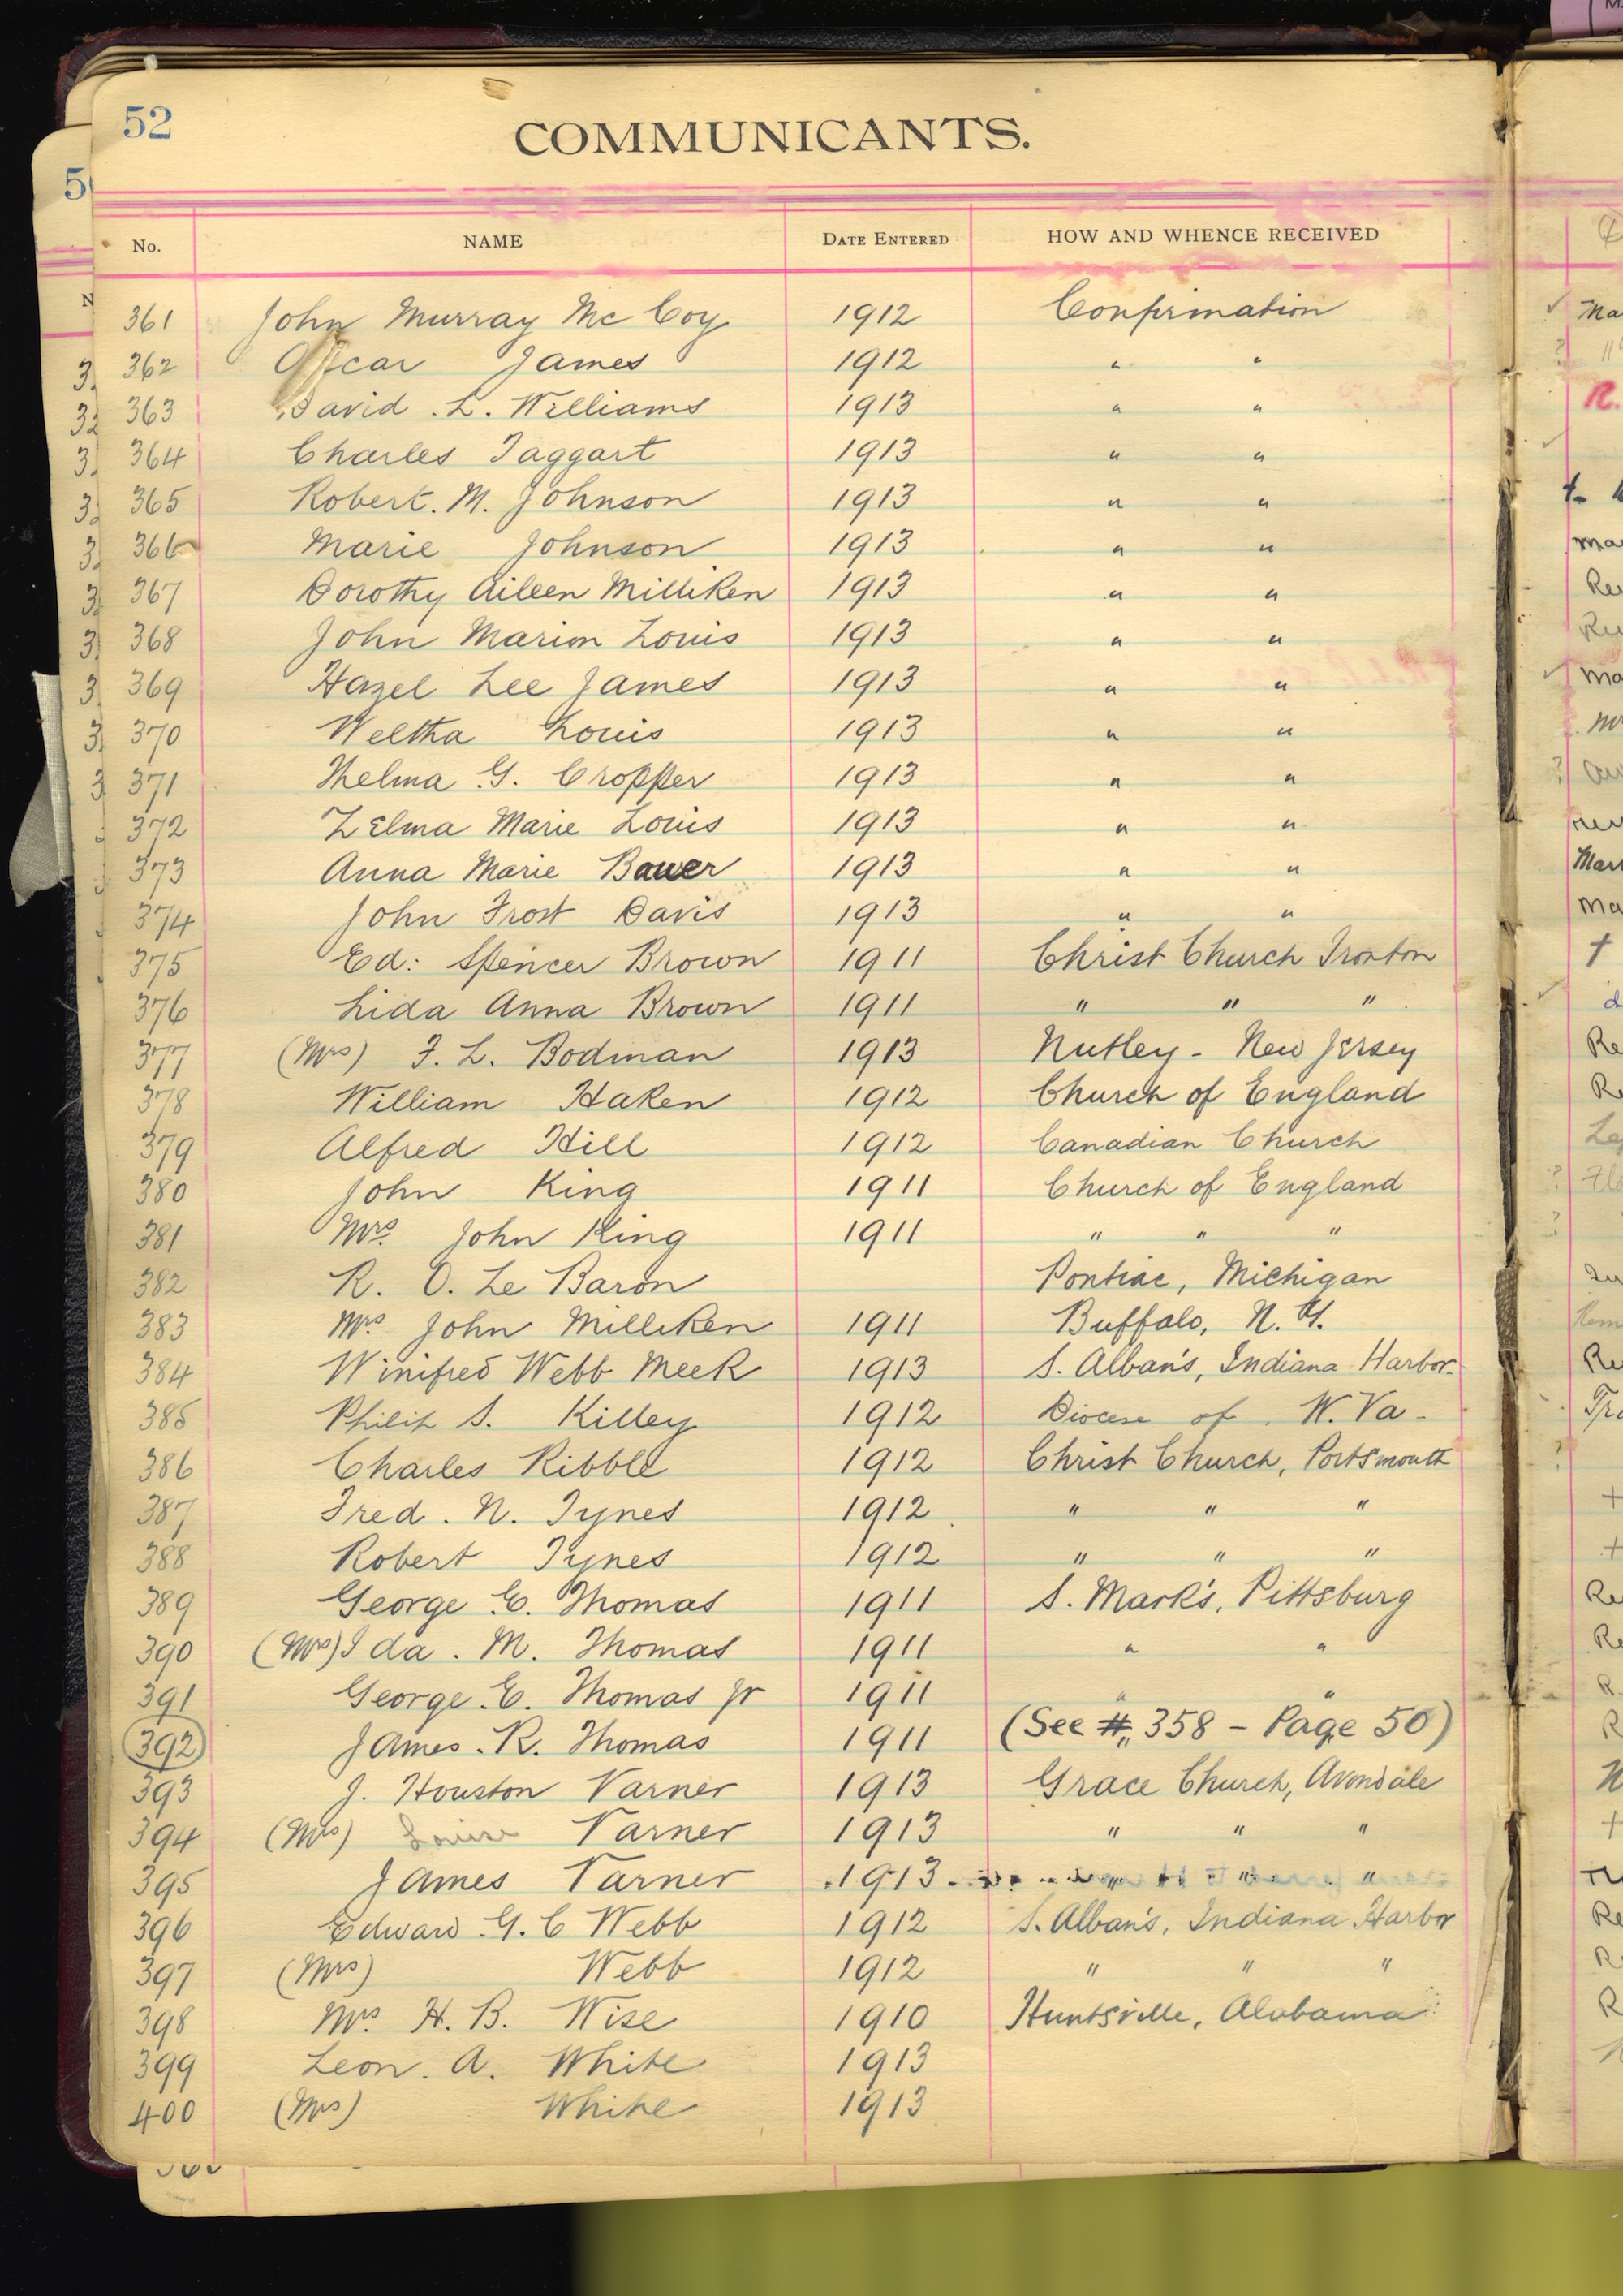 52
COMMUNICANTS.
No. NAME DATE ENTERED HOW AND WHENCE RECEIVED
361 John Murray Mc Coy 1912 Confirmation
362 Oscar James 1912 " "
363 David . L. Williams 1913 " "
364 Charles Taggart 1913 " "
365 Robert. M. Johnson 1913 " "
366 Marie Johnson 1913 " "
367 Dorothy Aileen Milliken 1913 " "
368 John Marion Louis 1913 " "
369 Hazel Lee James 1913 " "
370 Weltha Louis 1913 " "
371 Thelma G. Cropper 1913 " "
372 Zelma Marie Louis 1913 " "
373 Anna Marie Bauer 1913 " "
374 John Frost Davis 1913 " "
375 Ed: Spencer Brown 1911 Christ Church Ironton
376 Lida Anna Brown 1911 " " "
377 (Mrs) F. L. Bodman 1913 Nutley - New Jersey
378 William Haken 1912 Church of England
379 Alfred Hill 1912 Canadian Church
380 John King 1911 Church of England
381 Mrs. John King 1911 " " "
382 R. O. Le Baron Pontiac, Michigan
383 Mrs John Milliken 1911 Buffalo, N. Y.
384 Winifred Webb Meek 1913 S. Alban's, Indiana Harbor
385 Philip S. Killey 1912 Diocese of W. Va -
386 Charles Ribble 1912 Christ Church, Portsmouth
387 Fred . N. Tynes 1912 " " "
388 Robert Tynes 1912 " " "
389 George E. Thomas 1911 S. Mark's, Pittsburg
390 (Mrs) Ida . M. Thomas 1911 " "
391 George E. Thomas Jr 1911 " "
392 James . R. Thomas 1911 (See # 358 - Page 50)
393 J. Houston Varner 1913 Grace Church, Avondale
394 (Mrs) Louise Varner 1913 " " "
395 James Varner 1913 " " "
396 Edward G. C Webb 1912 S. Alban's, Indiana Harbor
397 (Mrs) Webb 1912 " " "
398 Mrs. H. B. Wise 1910 Huntsville, Alabama
399 Leon. A. White 1913
400 (Mrs) White 1913